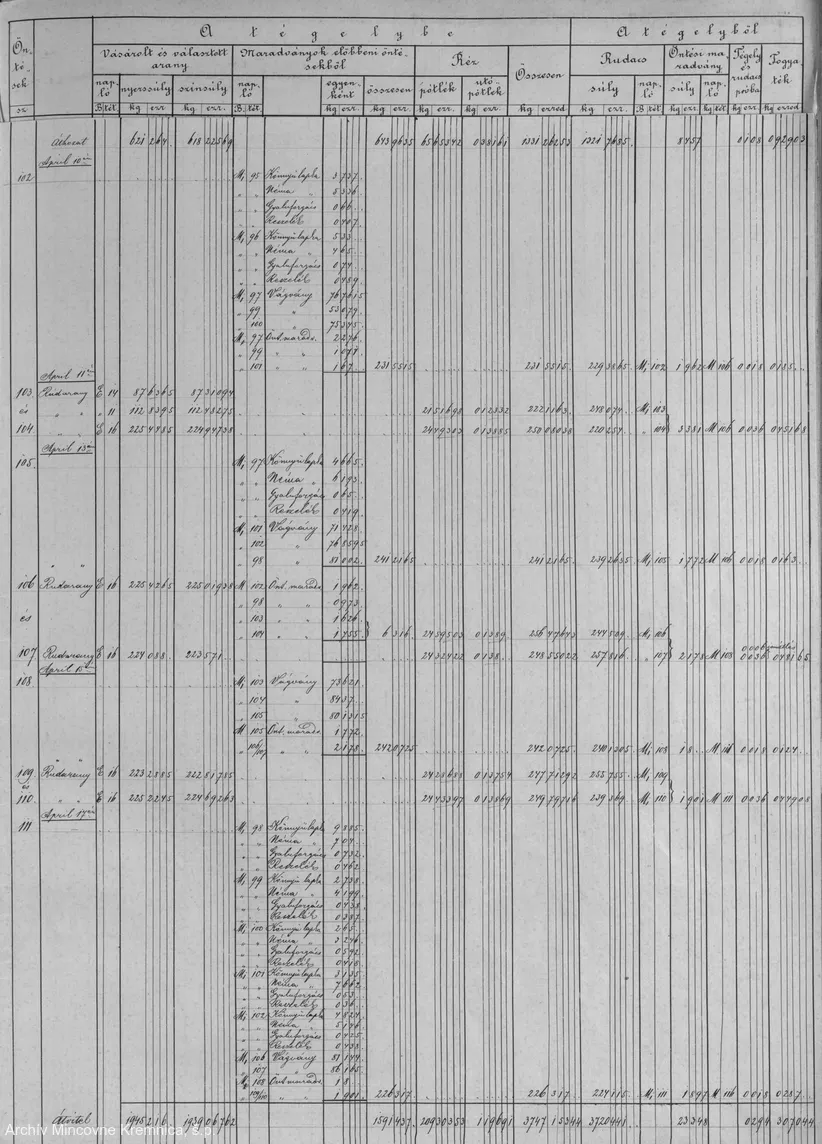 A tégelybe A tégelyből
Öntések Vásárolt és választott arany Maradványok előbbeni öntésekből összesen Réz Összesen Rudacs Öntési maradvány Tégely és rudacs próba Fogyaték
napló nyerssúly színsúly napló egyenként pótlék utópótlék súly napló súly napló
sz B. tét. kg err. kg err. B. tét. kg err. kg err. kg err. kg err. kg erred kg err. B. tét. kg err. kg tét. kg err. kg erred
Áthozat 621 264 618 22569 6439635 6565342 038161 1331 26253 1321 7685 8457 0108 092903
April 10én
102 M, 95 Könnyű lapka 3 737
„ „ Néma „ 5 336
„ „ Gyaluforgács 0 66
„ „ Reszelék 0 407
M, 96 Könnyű lapka 5 33
„ „ Néma „ 4 65
„ „ Gyaluforgács 0 74
„ „ Reszelék 0 489
M, 97 Vágvány 76 7615
„ 99 „ 53 074
„ 100 „ 75 345
M, 97 Önt. marads. 2 276
„ 99 „ „ 1 074
„ 101 „ „ 1 67 2315515 2315515 2293865 M, 102 1 962 M 106 0 018 0185
April 11én
103 Rudarany E 14 87 6365 87 31094
és „ „ „ 11 112 8395 112 48275 2151698 012332 2221163 248074 M, 103
104 „ E 16 225 4485 224 94738 2449383 013885 25008038 220257 „ 104 3 381 M 106 0 036 045168
April 13án
105 M, 97 Könnyű lapka 4 665
„ „ Néma „ 6 193
„ „ Gyaluforgács 0 65
„ „ Reszelék 0 419
M, 101 Vágvány 71 428
„ 102 „ 76 8595
„ 98 „ 81 002 2412165 2412165 2392635 M, 105 1 772 M 106 0 018 0163
106 Rudarany E 16 225 4265 225 01938 M 102 Önt. marads. 1 962
„ 98 „ „ 0 973
és „ 103 „ „ 1 626
„ 104 „ „ 1 755 6 316 2439503 01389 25647643 244509 M, 106
107 Rudarany E 16 224 088 223 571 2432422 0138 24855022 257816 „ 107 2 178 M 108 0 036 048165
April 15én
108 M, 103 Vágvány 73 621
„ 104 „ 84 37
„ 105 „ 80 1315
M 105 Önt. marads. 1 772
„ 106/107 „ „ 2 178 2420725 2420725 2401305 M, 108 1 8 M 111 0 018 0124
109 Rudarany E 16 223 2885 222 81785 2428688 013754 24771292 255755 M, 109
és
110 „ „ E 16 225 2245 224 69263 2443347 013869 24979716 239369 M, 110 1 901 M 111 0 036 044908
April 17én
111 M, 98 Könnyű lapka 9 885
„ „ Néma „ 7 04
„ „ Gyaluforgács 0 732
„ „ Reszelék 0 462
M, 99 Könnyű lapka 2 738
„ „ Néma „ 4 199
„ „ Gyaluforgács 0 438
„ „ Reszelék 0 387
M, 100 Könnyű lapka 2 65
„ „ Néma „ 3 246
„ „ Gyaluforgács 0 592
„ „ Reszelék 0 418
M, 101 Könnyű lapka 3 135
„ „ Néma „ 7 662
„ „ Gyaluforgács 0 53
„ „ Reszelék 0 36
M, 102 Könnyű lapka 4 824
„ „ Néma „ 5 146
„ „ Gyaluforgács 0 425
„ „ Reszelék 0 438
M, 106 Vágvány 81 144
„ 107 „ 86 165
M, 108 Önt. marads. 1 8
„ 109/110 „ „ 1 901 226317 226317 224115 M, 111 1 897 M 116 0 018 0287
Átvitel 1945 216 1939 06762 1591437 20930353 119691 3747 15344 3720441 23348 0294 307044
Archív Mincovne Kremnica, š.p.